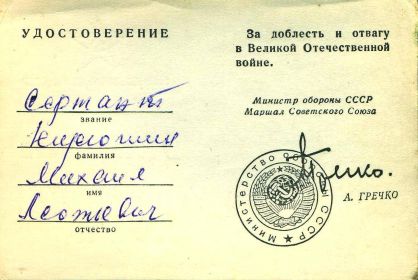 УДОСТОВЕРЕНИЕ
Сержант
звание
фамилия
Михаил
имя
отчество
За доблесть и отвагу
в Великой Отечественной
войне.
Министр обороны СССР
Маршал Советского Союза
А. ГРЕЧКО
Министерство Обороны СССР